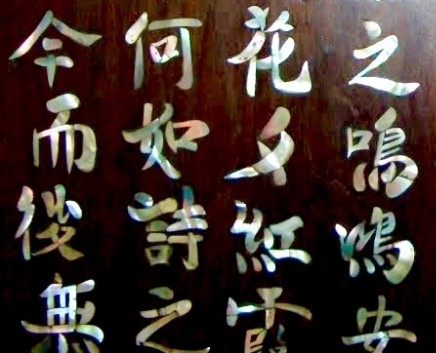 之鳴鴻安
花夕紅霞
何如詩之
今而後無